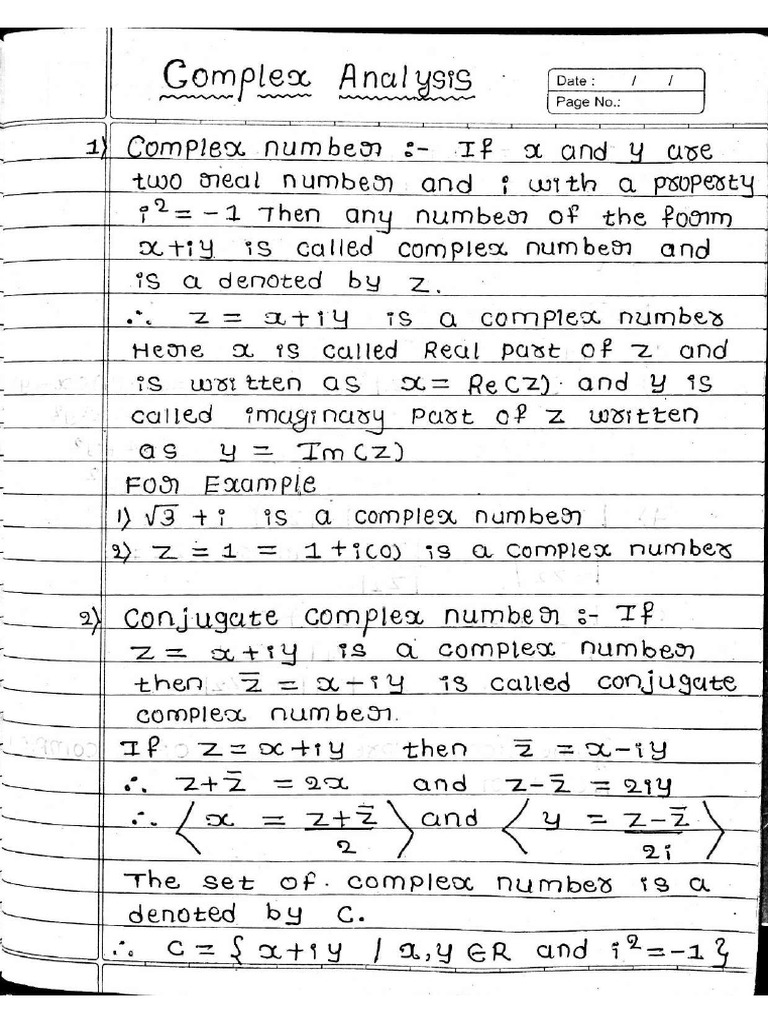 Complex Analysis
Date : / /
Page No.:
1) Complex number :- If x and y are
two real number and i with a property
i² = -1 Then any number of the form
x+iy is called complex number and
is a denoted by z.
∴ z = x+iy is a complex number
Here x is called Real part of z and
is written as x = Re(z) and y is
called imaginary part of z written
as y = Im(z)
For Example
1) √3 + i is a complex number
2) z = 1 = 1+i(0) is a complex number
2) Conjugate complex number :- If
z = x+iy is a complex number
then z̄ = x-iy is called conjugate
complex number.
If z = x+iy then z̄ = x-iy
∴ z+z̄ = 2x and z-z̄ = 2iy
∴ ⟨ x = (z+z̄)/2 ⟩ and ⟨ y = (z-z̄)/2i ⟩
The set of complex number is a
denoted by C.
∴ C = { x+iy / x,y ∈R and i²=-1 }